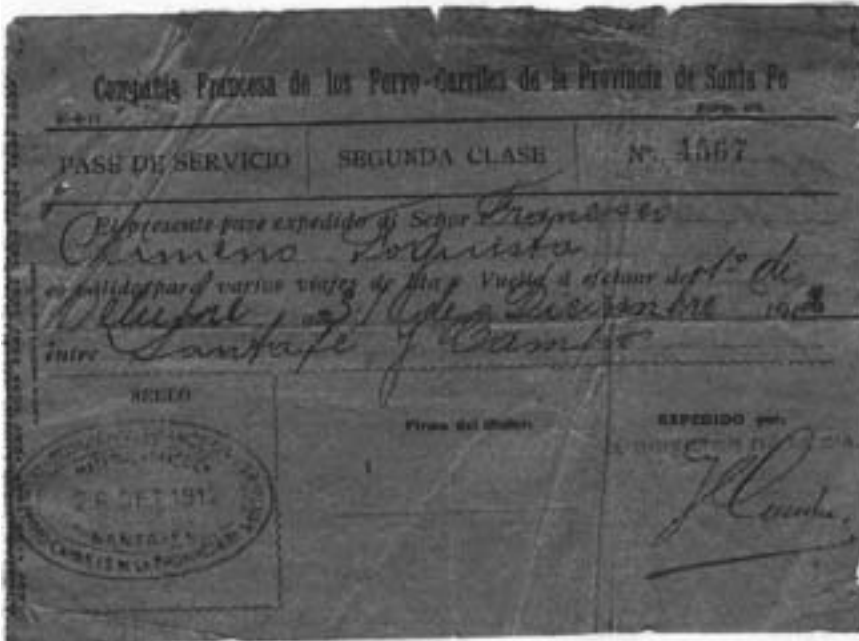 Compañia Francesa de los Ferro-Carriles de la Provincia de Santa Fe
PASE DE SERVICIO
SEGUNDA CLASE
Nº 4567
El presente pase expedido al Señor Francisco
Chimeno Foguista
es valido para varios viajes de Ida y Vuelta á efectuar del 1º de
Octubre al 31 de Diciembre 191
entre Santa fé y Cambio
SELLO
Firma del titular:
EXPEDIDO por:
MATERIAL Y TRACCION
26 SET 1912
SANTA FE